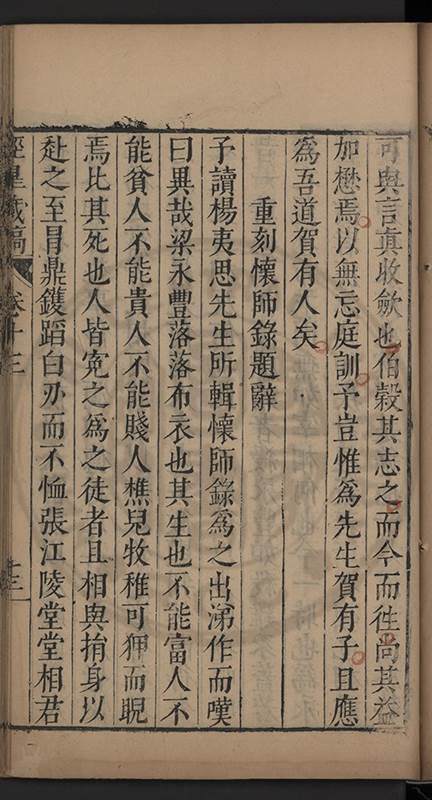 可與言真收歛也伯榖其志之而今而徃尚其益
加懋焉以無忘庭訓予豈惟為先生賀有子且應
為吾道賀有人矣
重刻懷師錄題辭
予讀楊夷思先生所輯懷師錄為之出涕作而嘆
曰異哉梁永豐落落布衣也其生也不能富人不
能貧人不能貴人不能賤人樵兒牧稚可狎而睨
焉比其死也人皆寃之為之徒者且相與捐身以
赴之至冐鼎鑊蹈白刃而不恤張江陵堂堂相君
藏稿 卷十三 十三